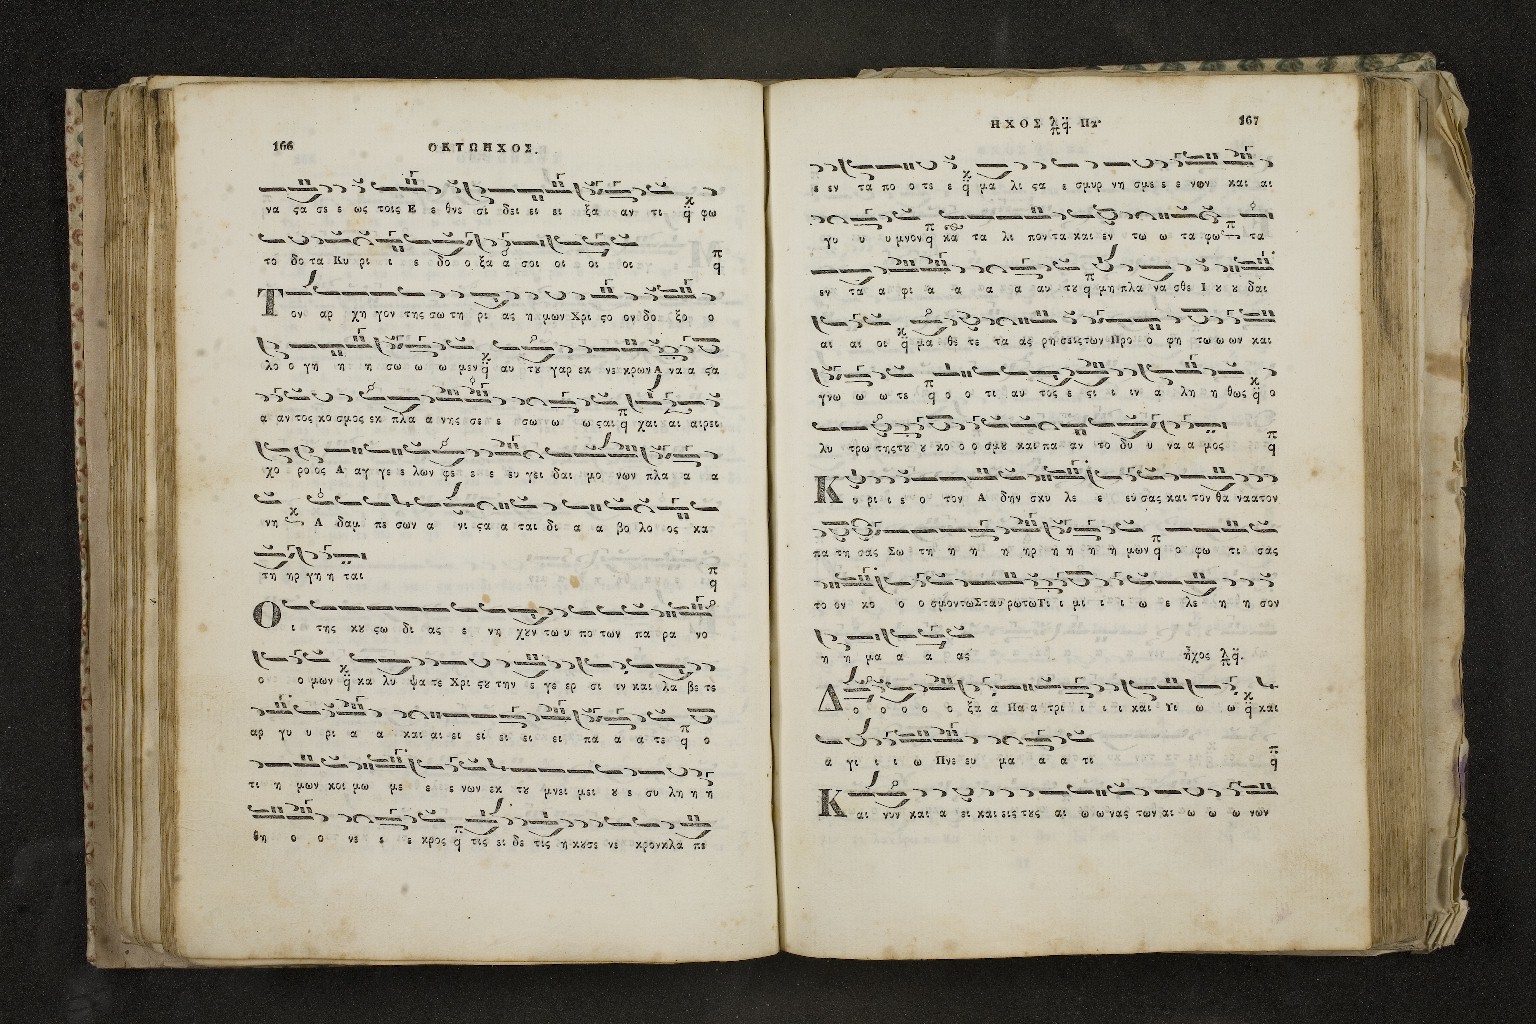 166 ΟΚΤΩΗΧΟΣ.
να ϛα σε ε ως τοις Ε ε θνε σι δει ει ει ξα αν τι φω
το δο τα Κυ ρι ι ε δο ο ξα α σοι οι οι οι
Τον αρ χη γον της σω τη ρι ας η μων Χρι ϛο ον δο ξο ο
λο ο γη η η σω ω ω μεν αυ τȣ γαρ εκ νε κρων Α να α ϛα
α αν τος κο σμος εκ πλα α νης σε ε ε σω ω ω ϛαι χαι αι αιρει
χο ρο ος Α αγ γε ε λων φε ε ε ευ γει δαι μο νων πλα α α
νη Α δαμ πε σων α νι ϛα α ται δι α α βο λο ος κα
τη ηρ γη η ται
Οι της κȣ ϛω δι ας ε νη χȣν τω υ πο των πα ρα νο
ο ο μων κα λυ ψα τε Χρι ϛȣ την ε γε ερ σι ιν και λα βε τε
αρ γυ υ ρι α α και αι ει ει ει ει ει πα α α τε ο
τι η μων κοι μω με ε ε ε νων εκ τȣ μνει μει ȣ ε συ λη η η
θη ο ο νε ε ε κρος τις ει δε τις η κȣσε νε κρον κλα πε
ΗΧΟΣ Πα 167
ε εν τα πο ο τε ε μα λι ϛα ε σμυρ νη σμε ε ε νων και αι
γυ υ υ μνον κα τα λι πον τα και εν τω ω τα φω τα
εν τα α φι α α α α αυ τȣ μη πλα να σθε Ι ȣ ȣ δαι
αι αι οι μα θε τε τα ας ρη σεις των Προ ο φη τω ω ων και
γνω ω ω τε ο ο τι αυ τος ε ϛι ι ιν α λη η θως ο
λυ τρω της τȣ ȣ κο ο ο σμȣ και πα αν το δυ υ να α μος
Κυ ρι ι ε ο τον Α δην σκυ λε ε ευ σας και τον θα να ατον
πα τη σας Σω τη η η η ηρ η η η η μων ο φω τι σας
το ον κο ο ο σμον τω Σταυ ρω τω Τι ι μι ι ι ω ε λε η η σον
η η μα α α ας ἦχος
Δο ο ο ο ο ξα α Πα α τρι ι ι ι και Υι ω ω και
α γι ι ι ω Πνε ευ μα α α τι
Και νυν και α ει και εις τȣς αι ω ω νας των αι ω ω ω νων